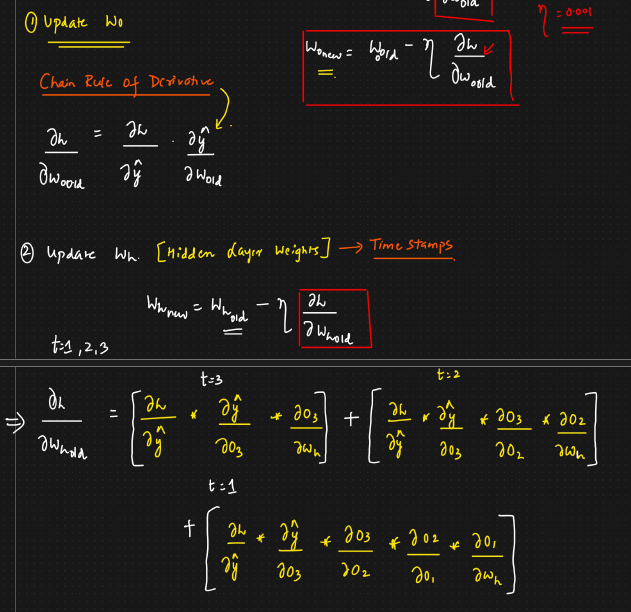 ① Update Wo
η = 0.001
Wo new = Wo old − η ∂L/∂Wo old
Chain Rule of Derivative
∂L/∂Wo old = ∂L/∂ŷ . ∂ŷ/∂Wold
② Update Wh. [Hidden Layer Weights] → Time stamps
Wh new = Wh old − η ∂L/∂Wh old
t=1,2,3
t=3
t=2
⇒ ∂L/∂Wh old = [∂L/∂ŷ * ∂ŷ/∂O3 * ∂O3/∂Wh] + [∂L/∂ŷ * ∂ŷ/∂O3 * ∂O3/∂O2 * ∂O2/∂Wh]
t=1
+ [∂L/∂ŷ * ∂ŷ/∂O3 * ∂O3/∂O2 * ∂O2/∂O1 * ∂O1/∂Wh]